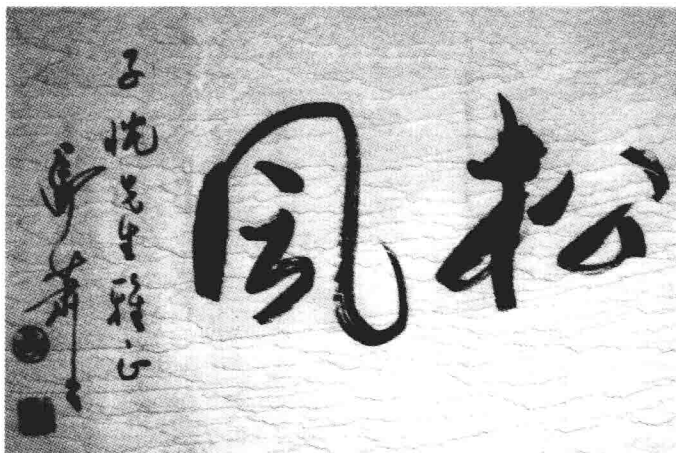 松风
子恺先生雅正